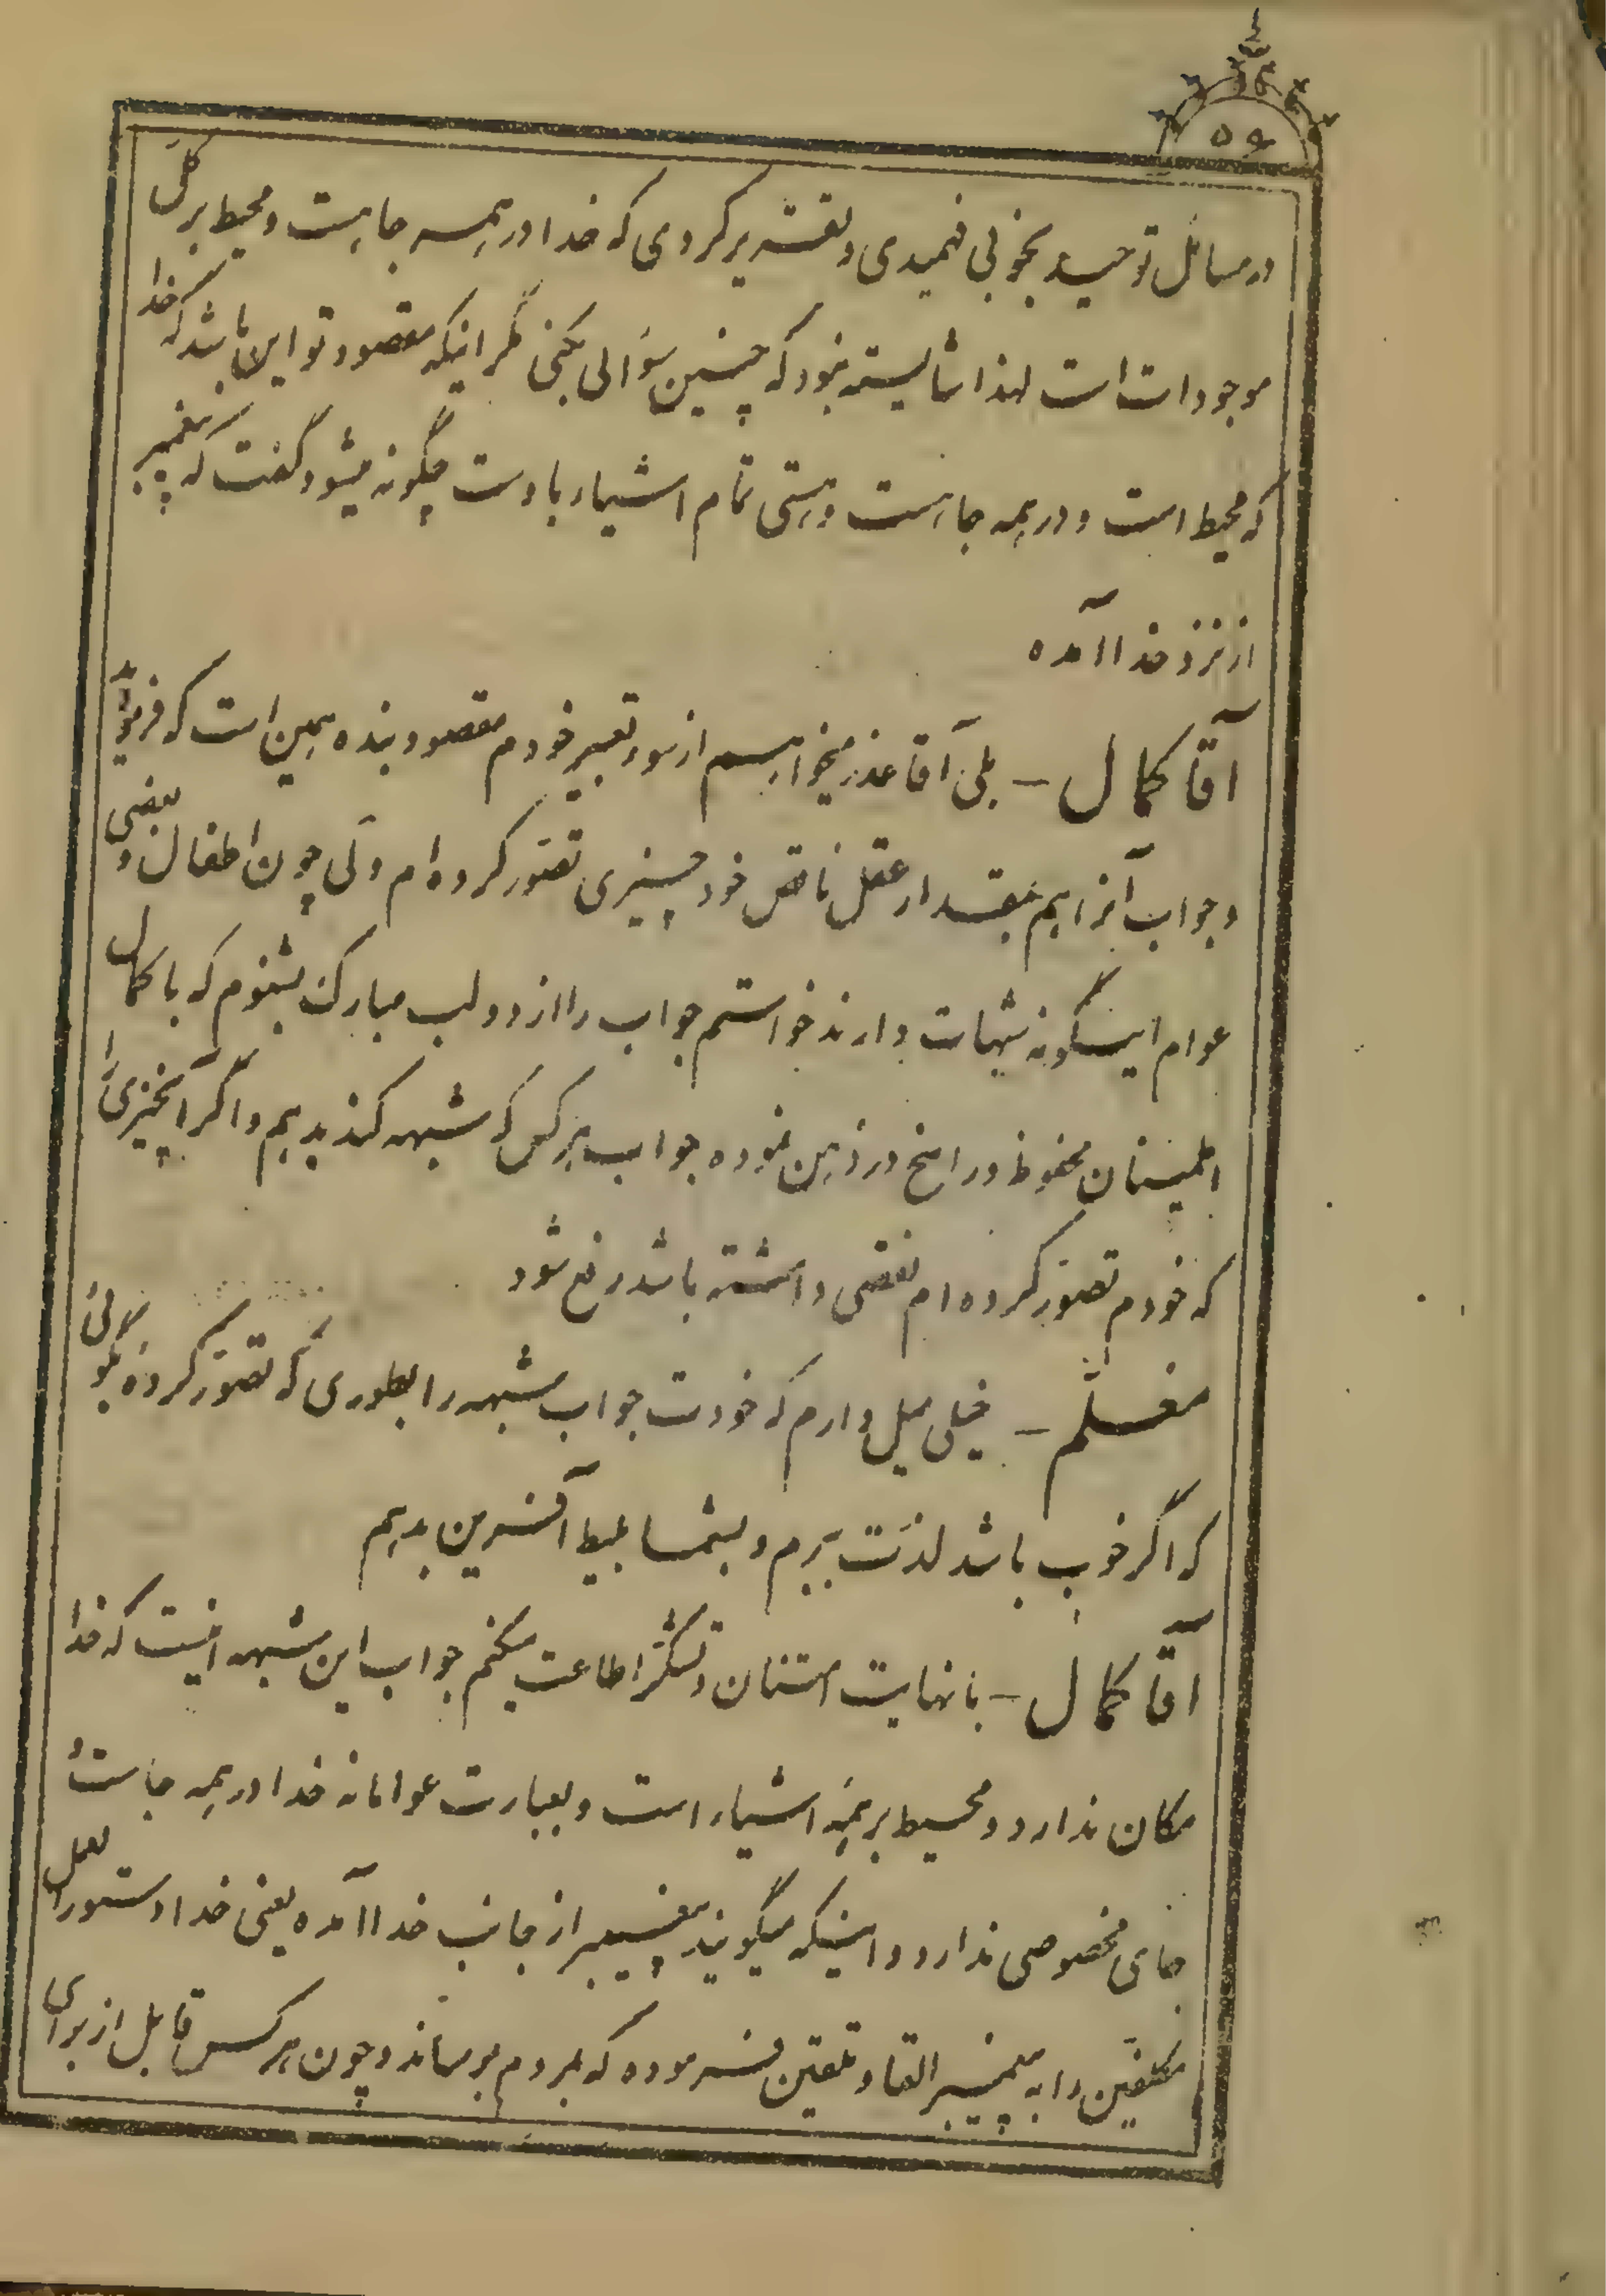 ۵۶
در مسائل توحید بخوبی فهمیدی و تقریر کردی که خدا در همه جا هست و محیط بر کل
موجودات است لهذا شایسته نبود که چنین سؤالی بکنی مگر اینکه مقصود تو این باشد که خدا
که محیط است و در همه جا هست و هستی تمام اشیاء باوست چگونه میشود گفت که پیغمبر
از نزد خدا آمده
آقا کمال – بلی آقا عذر میخواهم از سوء تعبیر خودم مقصود بنده همین است که فرمودید
و جواب آنرا هم بقدر عقل ناقص خود چیزی تصور کرده‌ام ولی چون اطفال و بعضی
عوام اینگونه شبهات دارند خواستم جواب را از دو لب مبارک بشنوم که با کمال
اطمینان محفوظ و راسخ در ذهن نموده جواب هر کس که شبهه کند بدهم و اگر آنچیزی را
که خودم تصور کرده‌ام نقصی داشته باشد رفع شود
معلم – خیلی میل دارم که خودت جواب شبهه را بطوری که تصور کردهٔ بگوئی
که اگر خوب باشد لذت ببرم و بشما بلیط آفرین بدهم
آقا کمال – با نهایت امتنان و تشکر اطاعت میکنم جواب این شبهه اینست که خدا
مکان ندارد و محیط بر همهٔ اشیاء است و بعبارت عوامانه خدا در همه جاست و
جای مخصوصی ندارد و اینکه میگویند پیغمبر از جانب خدا آمده یعنی خدا دستورالعمل
مکلفین را به پیغمبر القا و تلقین فرموده که بمردم برساند و چون هر کس قابل از برای